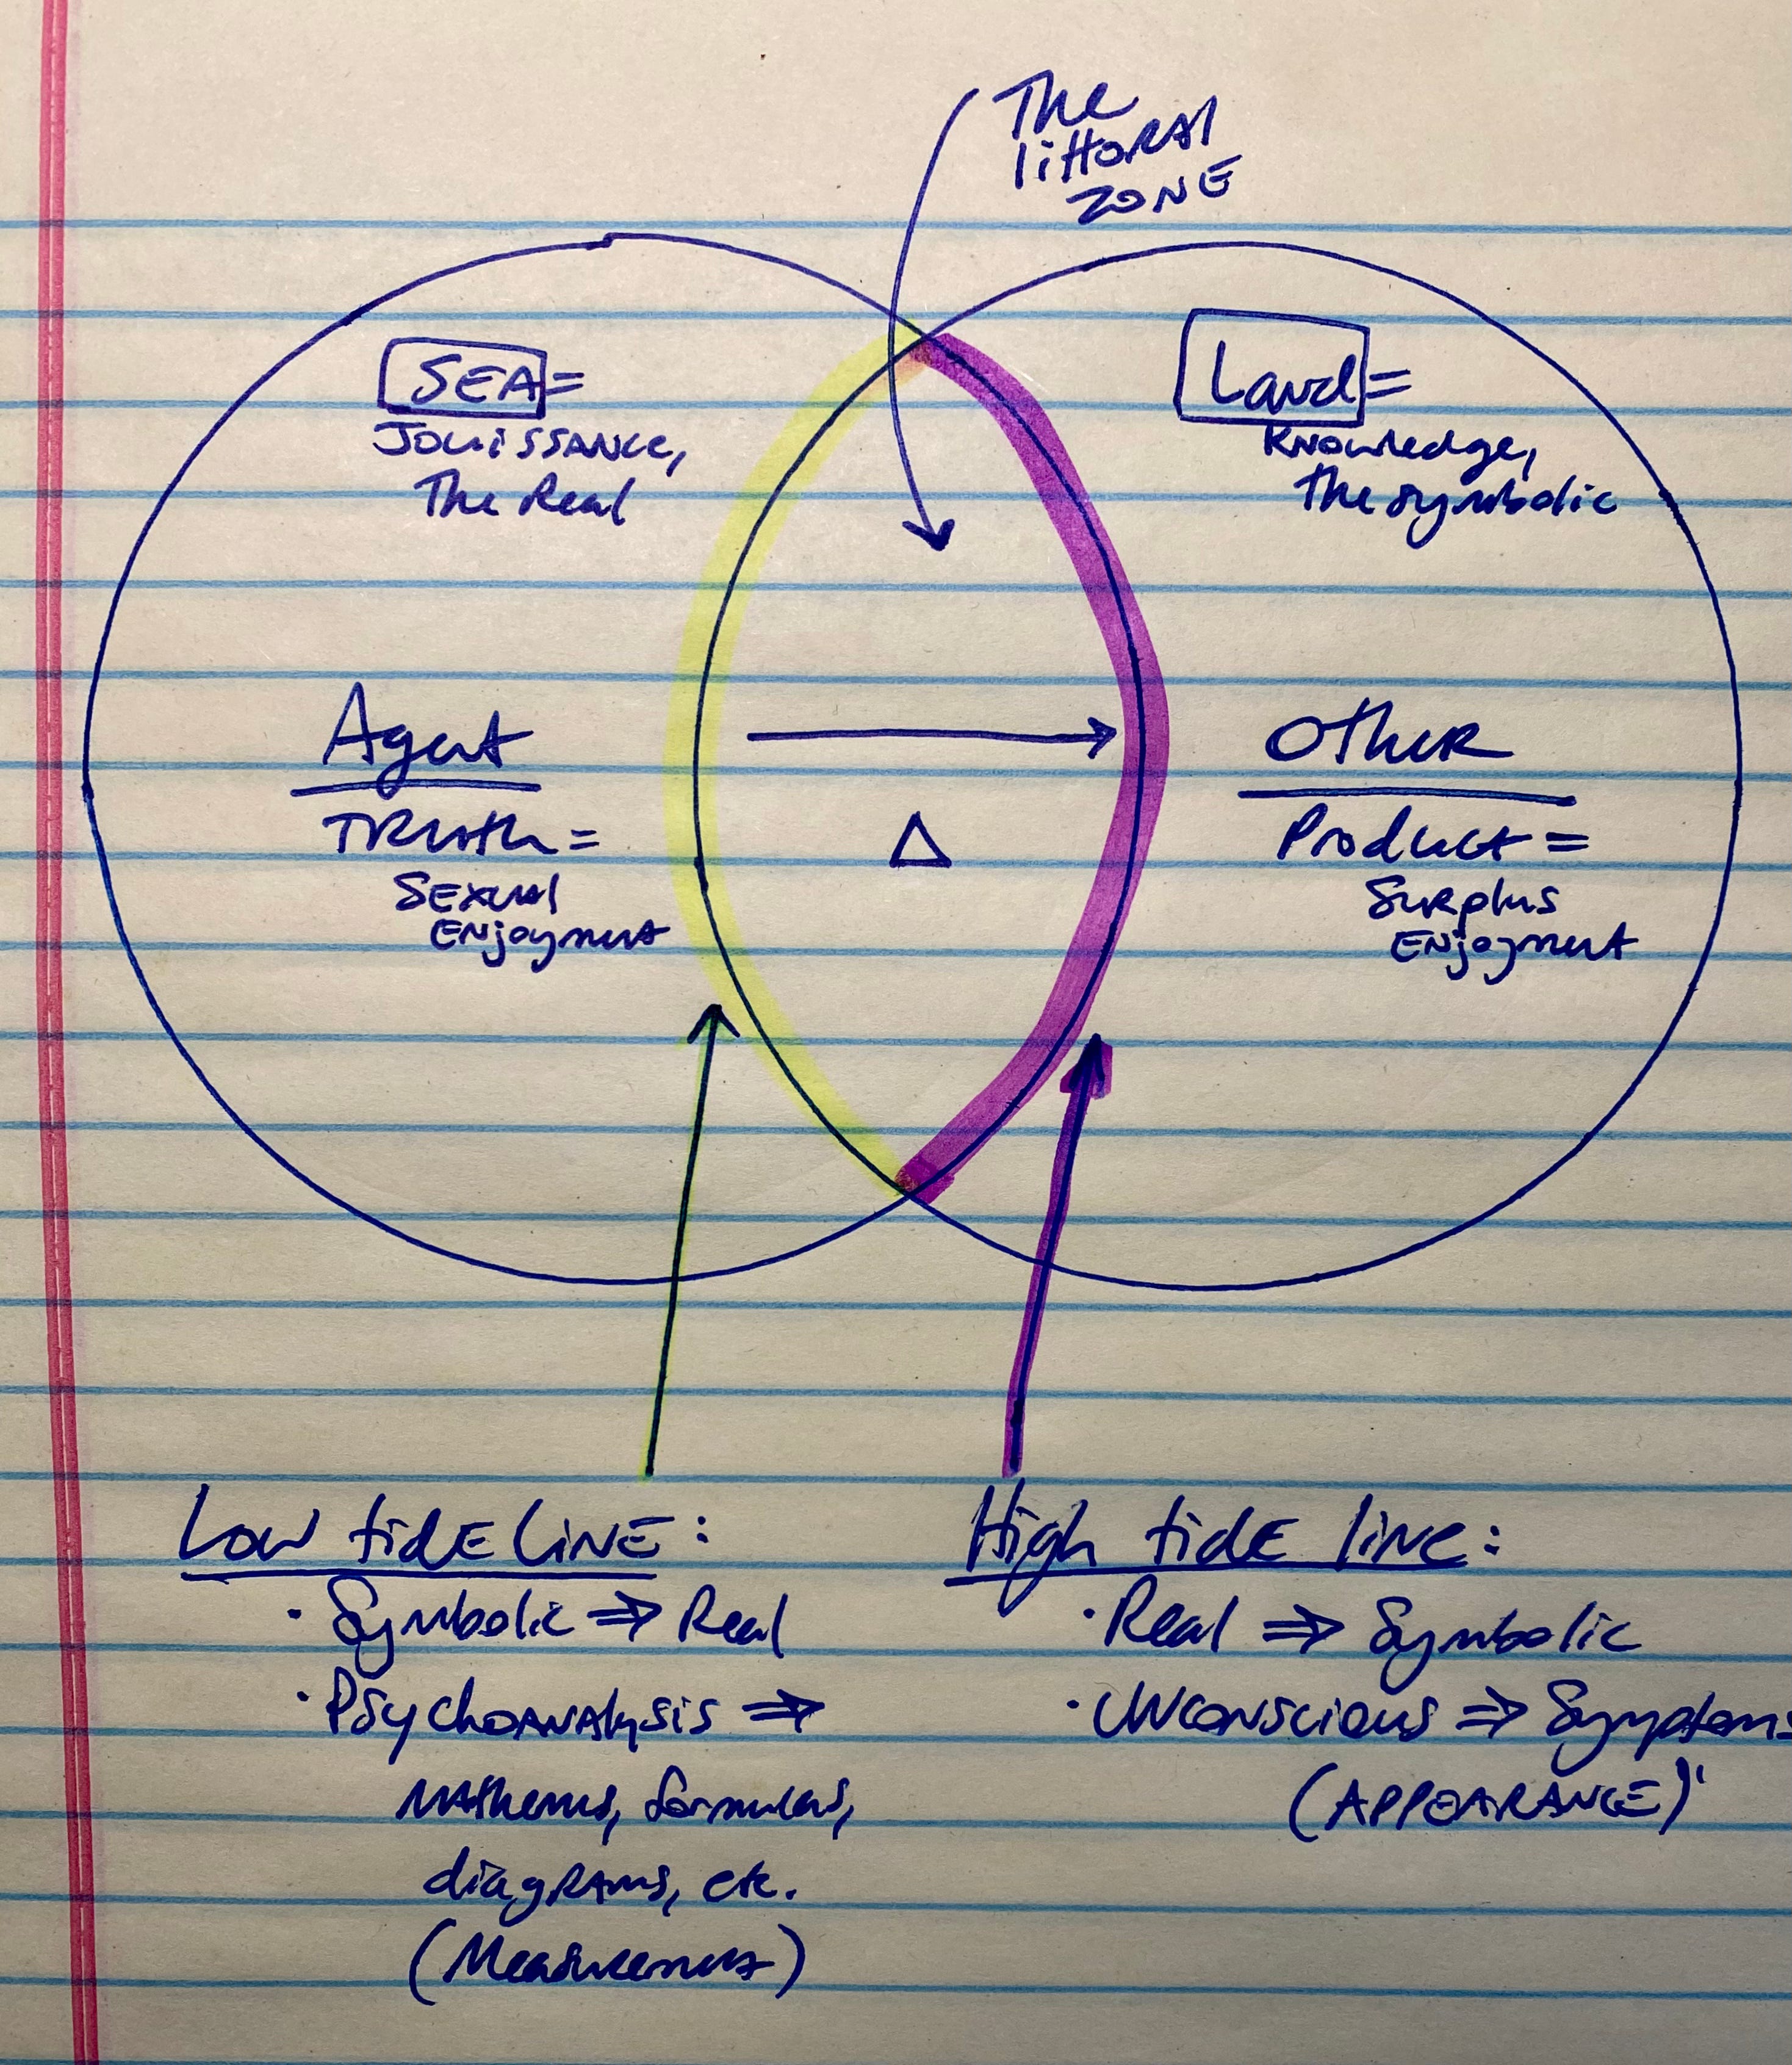 The
littoral
ZONE
SEA=
Jouissance,
The Real
Land=
Knowledge,
the symbolic
Agent
Truth=
Sexual
Enjoyment
Δ
Other
Product=
Surplus
Enjoyment
Low tide line:
· Symbolic ⇒ Real
· Psychoanalysis ⇒
mathemes, formulas,
diagrams, etc.
(Measurement)
High tide line:
· Real ⇒ Symbolic
· Unconscious ⇒ Symptoms
(APPEARANCE)